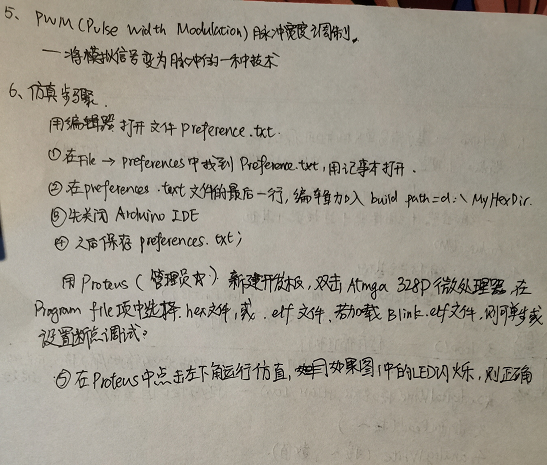 5、PWM(Pulse Width Modulation)脉冲宽度调制。
— 将模拟信号变为脉冲的一种技术
6、仿真步骤.
用编辑器打开文件preference.txt.
①在File → preferences中找到Preference.txt,用记事本打开.
②在preferences .text文件的最后一行,编辑加入 build path=d:\ MyHexDir.
③先关闭 Arduino IDE
④之后保存preferences. txt;
用Proteus(管理员)新建开发板,双击Atmga 328P微处理器,在
Program file项中选择.hex文件,或 .elf文件.若加载Blink.elf文件,则可单步或
设置断点调试。
⑤在Proteus中点击左下角运行仿真,如果图1中的LED闪烁,则正确